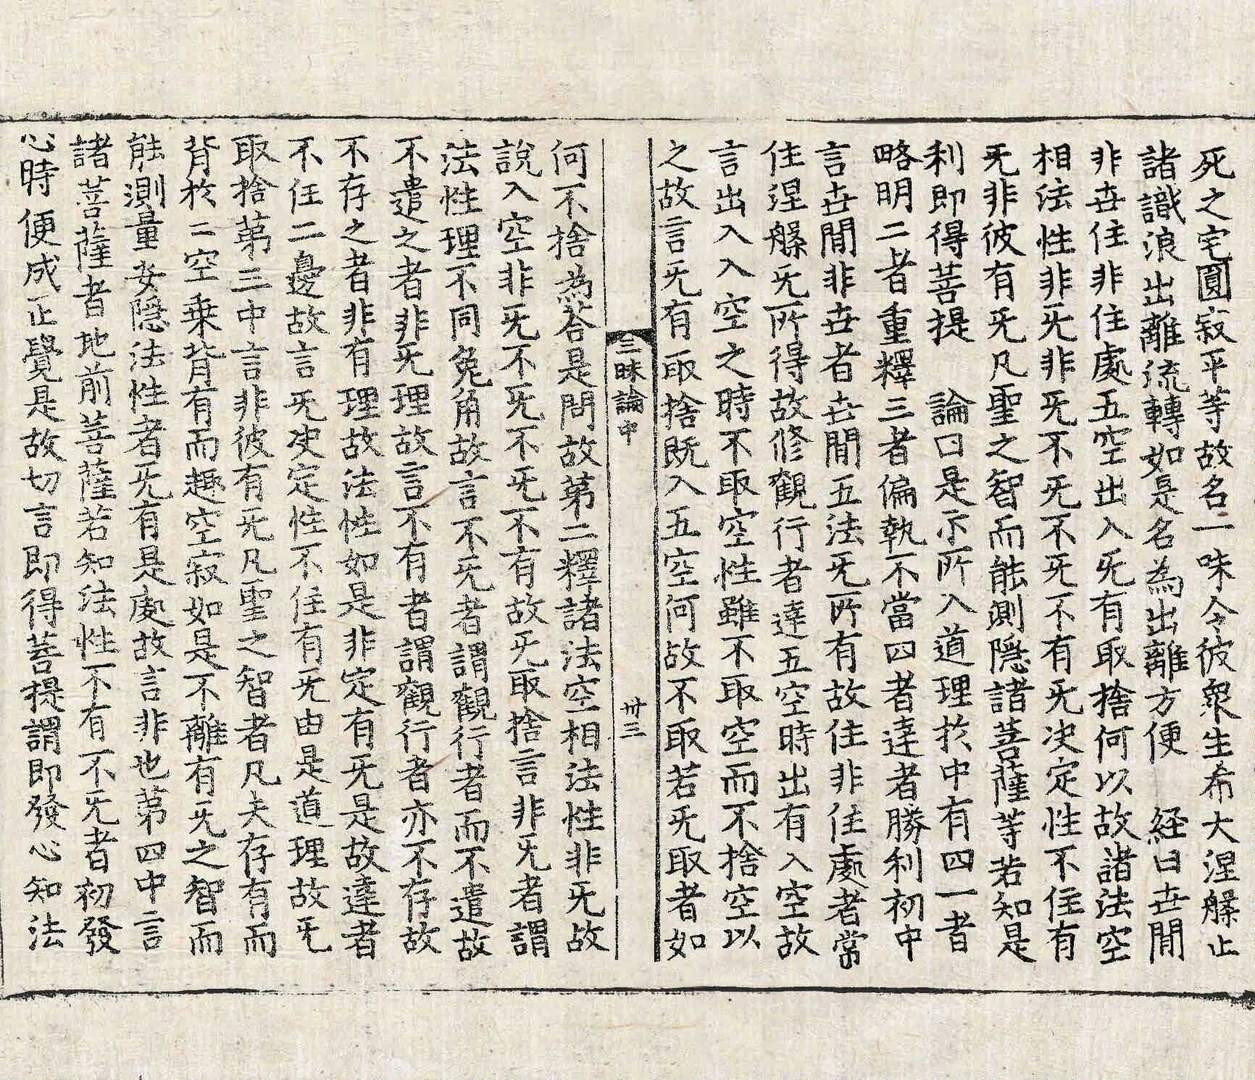 死之宅圓寂平等故名一味令彼衆生希大涅槃止
諸識浪出離流轉如是名為出離方便　経曰世間
非世住非住處五空出入旡有取捨何以故諸法空
相法性非旡非旡不旡不旡不有旡决定性不住有
旡非彼有旡凡聖之智而能測隱諸菩薩等若知是
利即得菩提　論曰是示所入道理於中有四一者
略明二者重釋三者偏執不當四者達者勝利初中
言世間非世者世間五法旡所有故住非住處者當
住涅槃旡所得故修觀行者達五空時出有入空故
言出入入空之時不取空性雖不取空而不捨空以
之故言旡有取捨既入五空何故不取若旡取者如
三昧論中
卅三
何不捨為答是問故第二釋諸法空相法性非旡故
說入空非旡不旡不旡不有故旡取捨言非旡者謂
法性理不同兔角故言不旡者謂觀行者而不遣故
不遣之者非旡理故言不有者謂觀行者亦不存故
不存之者非有理故法性如是非定有旡是故達者
不住二邊故言旡决定性不住有旡由是道理故旡
取捨第三中言非彼有旡凡聖之智者凡夫存有而
背於二空乗背有而趣空寂如是不離有旡之智而
能測量安隱法性者旡有是處故言非也第四中言
諸菩薩者地前菩薩若知法性不有不旡者初發
心時便成正覺是故切言即得菩提謂即發心知法